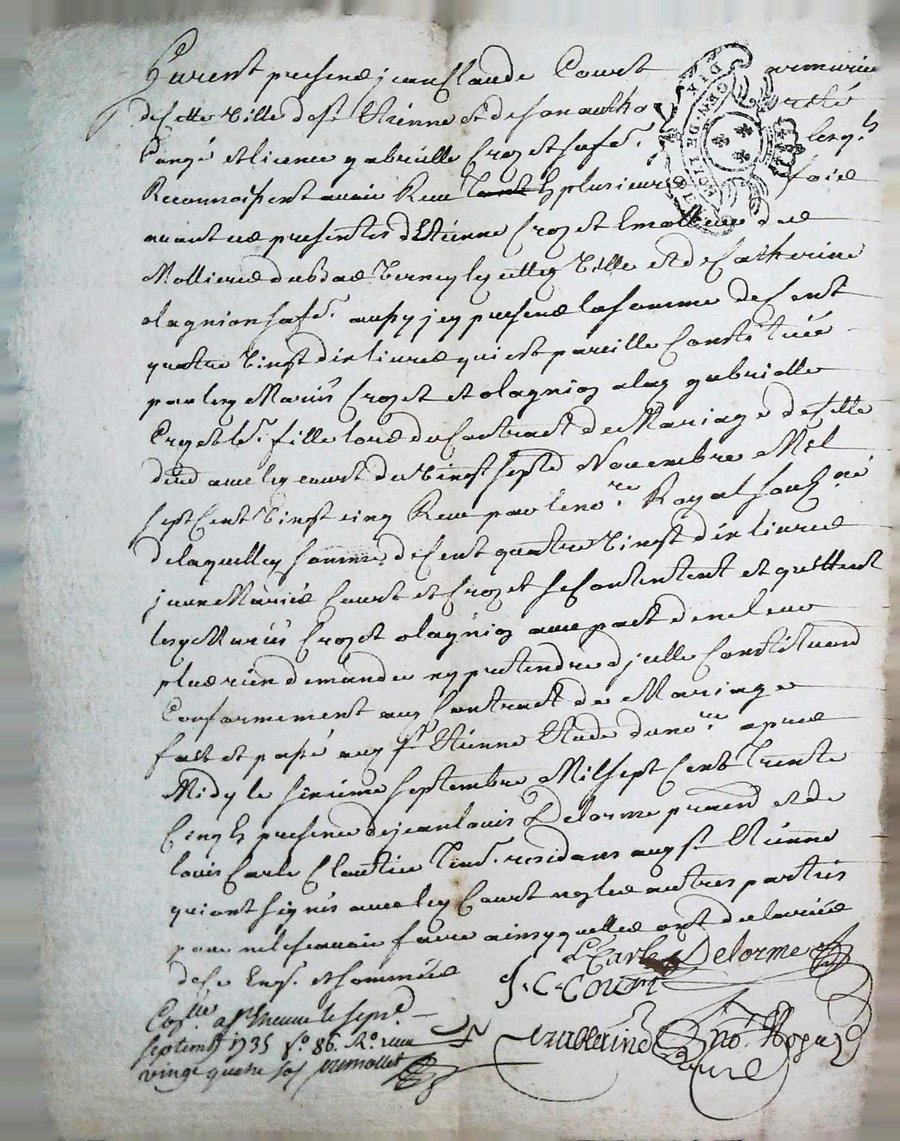 Furent presens jean Claude Court armurier
de cette Ville de St Etienne et de son autho rité
Congé et licence gabrielle Crozet sa fe. lesqls
Reconnoissent avoir Reçu plusieurs fois
avant ces presentes d'Etienne Crozet des
Mollieres Verney Ville et de Catherine
olagnion sa fe. aussy jcy presens la somme de Cent
quatre Vingt dix livres qui est pareille Constituée
par lesd Mariés Crozet et olagnion a lad gabrielle
Crozet le. fille lors du Contract de Mariage de celle
avec led Court du Vingt sept Novembre Mil
sept Cent Vingt cinq Reçu par le nore Royal sousné
de laquelle somme de Cent quatre Vingt dix livres
Mariés Court et Crozet se Contentent et quittent
lesd Mariés Crozet olagnion avec pact de ne leur
plus rien demander ny pretendre d'jcelle Constitution
Conformement aud Contract de Mariage
fait et passé aud St Etienne Etude du nore apres
Midy le sixieme septembre Mil sept Cent Trente
Cinq presens jean louis Delorme pratn et de
louis Carle Cloutier residans aud St Etienne
qui ont signés avec led Court non les autres parties
pour ne le scavoir faire ainsy quelles ont declarées
de ce Enqs. et sommées
L. Carle Delorme
J. C. Court
Conlle a St Etienne le sept
septembre 1735 fo. 86. Ro. reçu
vingt quatre sols
no. Royal
GEN. DE LYON DIX